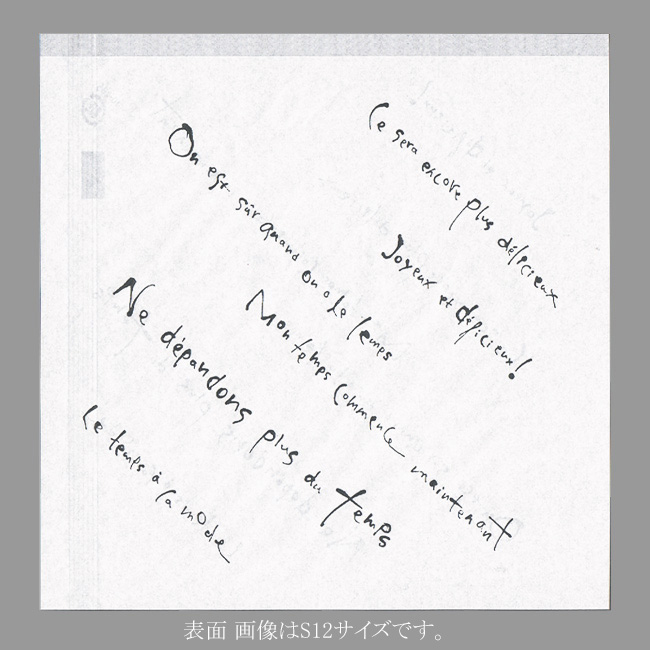 Ce sera encore plus délicieux
On est sûr quand on a le temps
Joyeux et délicieux!
Mon temps commence maintenant
Ne dépandons plus du temps
Le temps à la mode
表面 画像はS12サイズです。